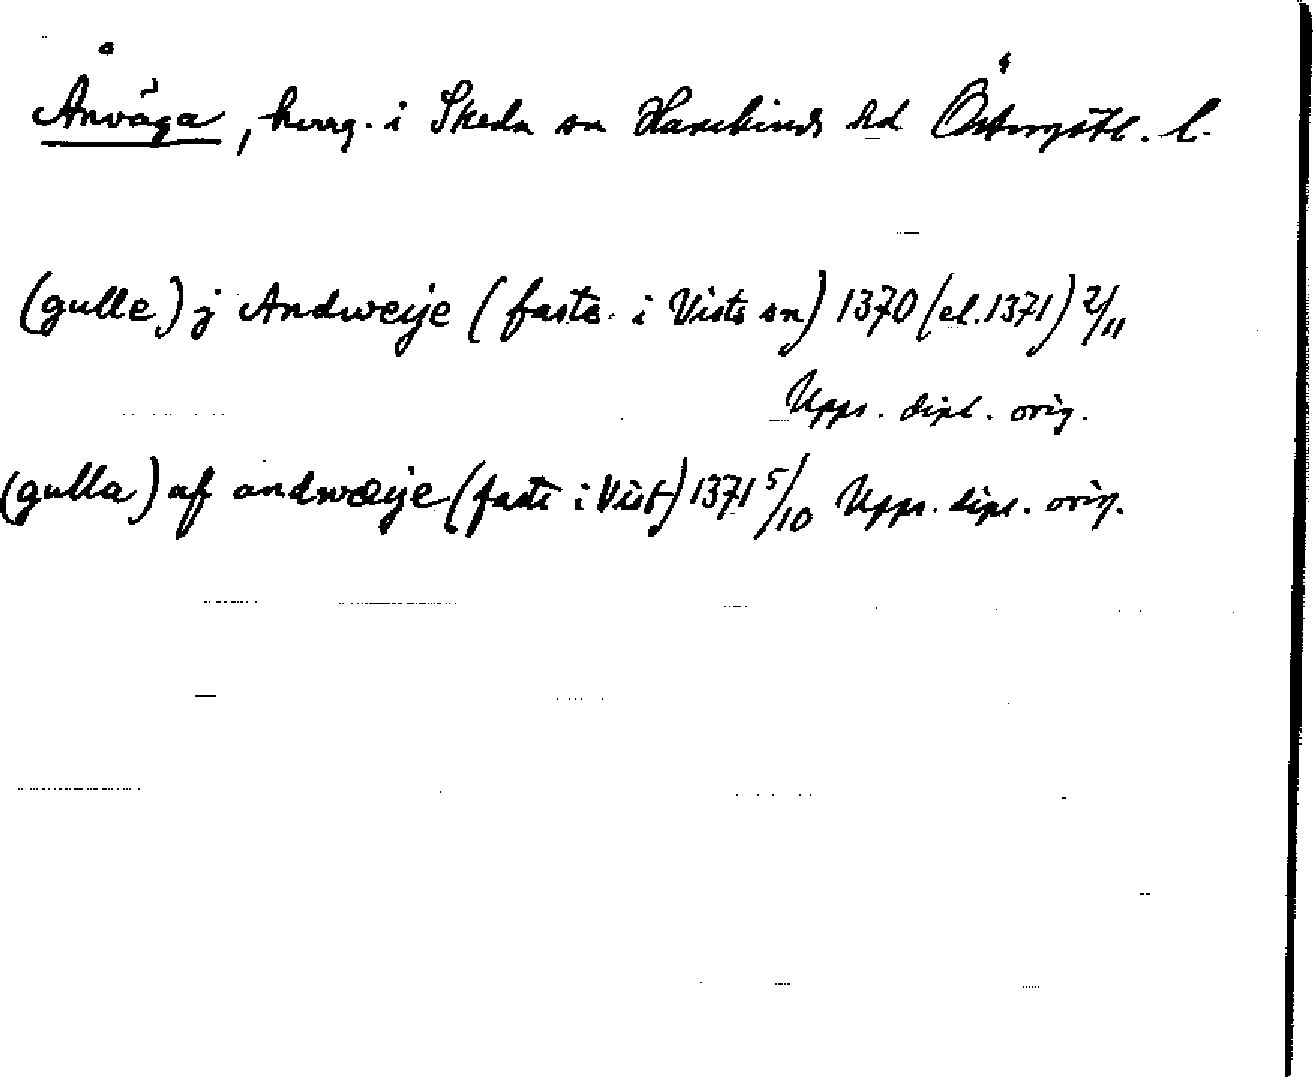 Ånväga, herrg. i Skeda sn Hanekinds hd Östergötl. l.
(gulle) j Andweije (faste i Vists sn) 1370 (el. 1371) 2/11
Upps. dipl. orig.
(gulla) af andwæije (faste i Vist) 1371 5/10 Upps. dipl. orig.